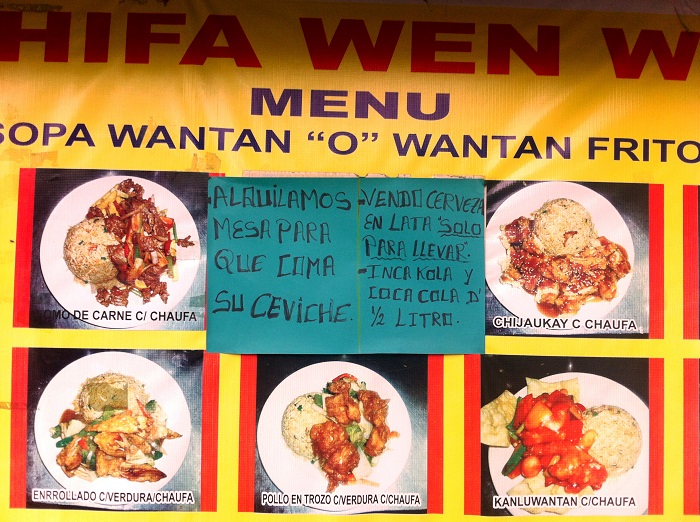 HIFA WEN W
MENU
SOPA WANTAN "O" WANTAN FRITO
-ALQUILAMOS
MESA PARA
QUE COMA
SU CEVICHE.
-VENDO CERVEZA
EN LATA "SOLO
PARA LLEVAR".
-INCA KOLA Y
COCA COLA D'
½ LITRO.
OMO DE CARNE C/ CHAUFA
CHIJAUKAY C CHAUFA
ENRROLLADO C/VERDURA/CHAUFA
POLLO EN TROZO C/VERDURA C/CHAUFA
KANLUWANTAN C/CHAUFA